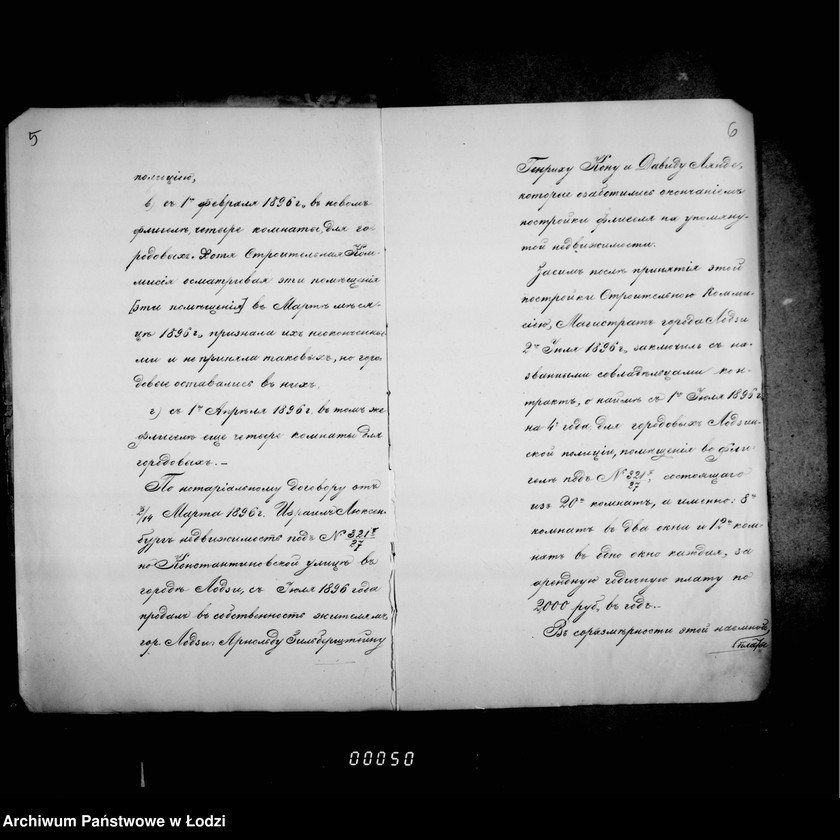 5
полиціею,
в) съ 1го февраля 1896 г., въ новомъ
флигелѣ, четыре комнаты, для го-
родовыхъ. Хотя Строительная Ком-
миссія осматривая эти помѣщенія
[эти помѣщенія] въ Мартѣ мѣся-
цѣ 1896 г., признала ихъ неоконченны-
ми и не приняла таковыхъ, но горо-
довые оставались въ нихъ.
г) съ 1го Апрѣля 1896 г. въ томъ же
флигелѣ еще четыре комнаты для
городовыхъ. –
По нотаріальному договору отъ
2/14 Марта 1896 г. Израиль Люксен-
бургъ недвижимость подъ № 321/27
по Константиновской улицѣ въ
городѣ Лодзи, съ Іюля 1896 года
продалъ въ собственность жителямъ
гор. Лодзи: Арнольду Зильберштейну
6
Генриху Кону и Давиду Ланде,
которые озаботились окончаніемъ
постройки флигеля на упомяну-
той недвижимости.
Засимъ послѣ принятія этой
постройки Строительною Комми-
сіею, Магистратъ города Лодзи
2го Іюля 1896 г., заключилъ съ на-
званными совладѣльцами кон-
трактъ, о наймѣ съ 1го Іюля 1896 г.
на 4 года для городовыхъ Лодзин-
ской полиціи, помѣщенія во фли-
гелѣ подъ № 321/27, состоящаго
изъ 20ти комнатъ, а именно: 8ми
комнатъ въ два окна и 12ти ком-
натъ въ одно окно каждая, за
арендную годичную плату по
2000 руб. въ годъ..
Въ соразмѣрности этой наемной
платы
00050
Archiwum Państwowe w Łodzi